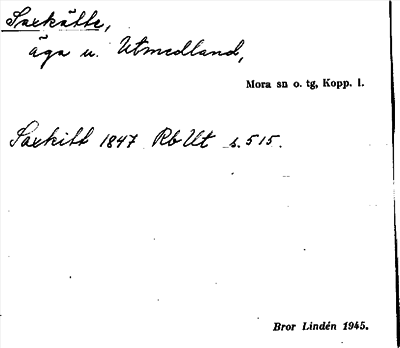 Saxkätte,
äga u. Utmedland,
Mora sn o. tg, Kopp. l.
Saxkitt 1847 Rb Ut s. 515.
Bror Lindén 1945.